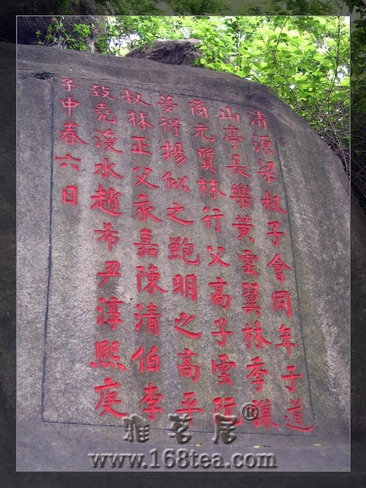 清源梁叔子會同年于道
山亭長樂黃雲翼林季謙
商元質林行父高子雲阮
行楊似之鮑明之高平
叔林正父永嘉陳清伯李
致堯浚水趙希尹淳熙庚
子中春六日
雅茗居®
www.168tea.com